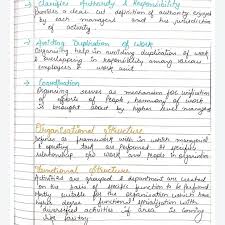 → Clarifies Authority & Responsibility
Provides a clear cut definition of authority enjoyed
by each manager and his jurisdiction
of activity.
→ Avoiding Duplication of Work
Organising helps in avoiding duplication of work
& overlapping in responsibility among various
employees & work unit
→ Coordination
Organising serves as mechanism for unification
of efforts of people, harmony of work
is brought about by higher level managers
Organisational Structure
Serves as framework within which managerial
& operating task are performed. It specifies
relationship b/w work and people in organisation
Functional Structure
Activities are grouped & department are created
on the basis of specific function to be performed
suitable for the organisation which have
higher degree functional specialisation with
diversified activities